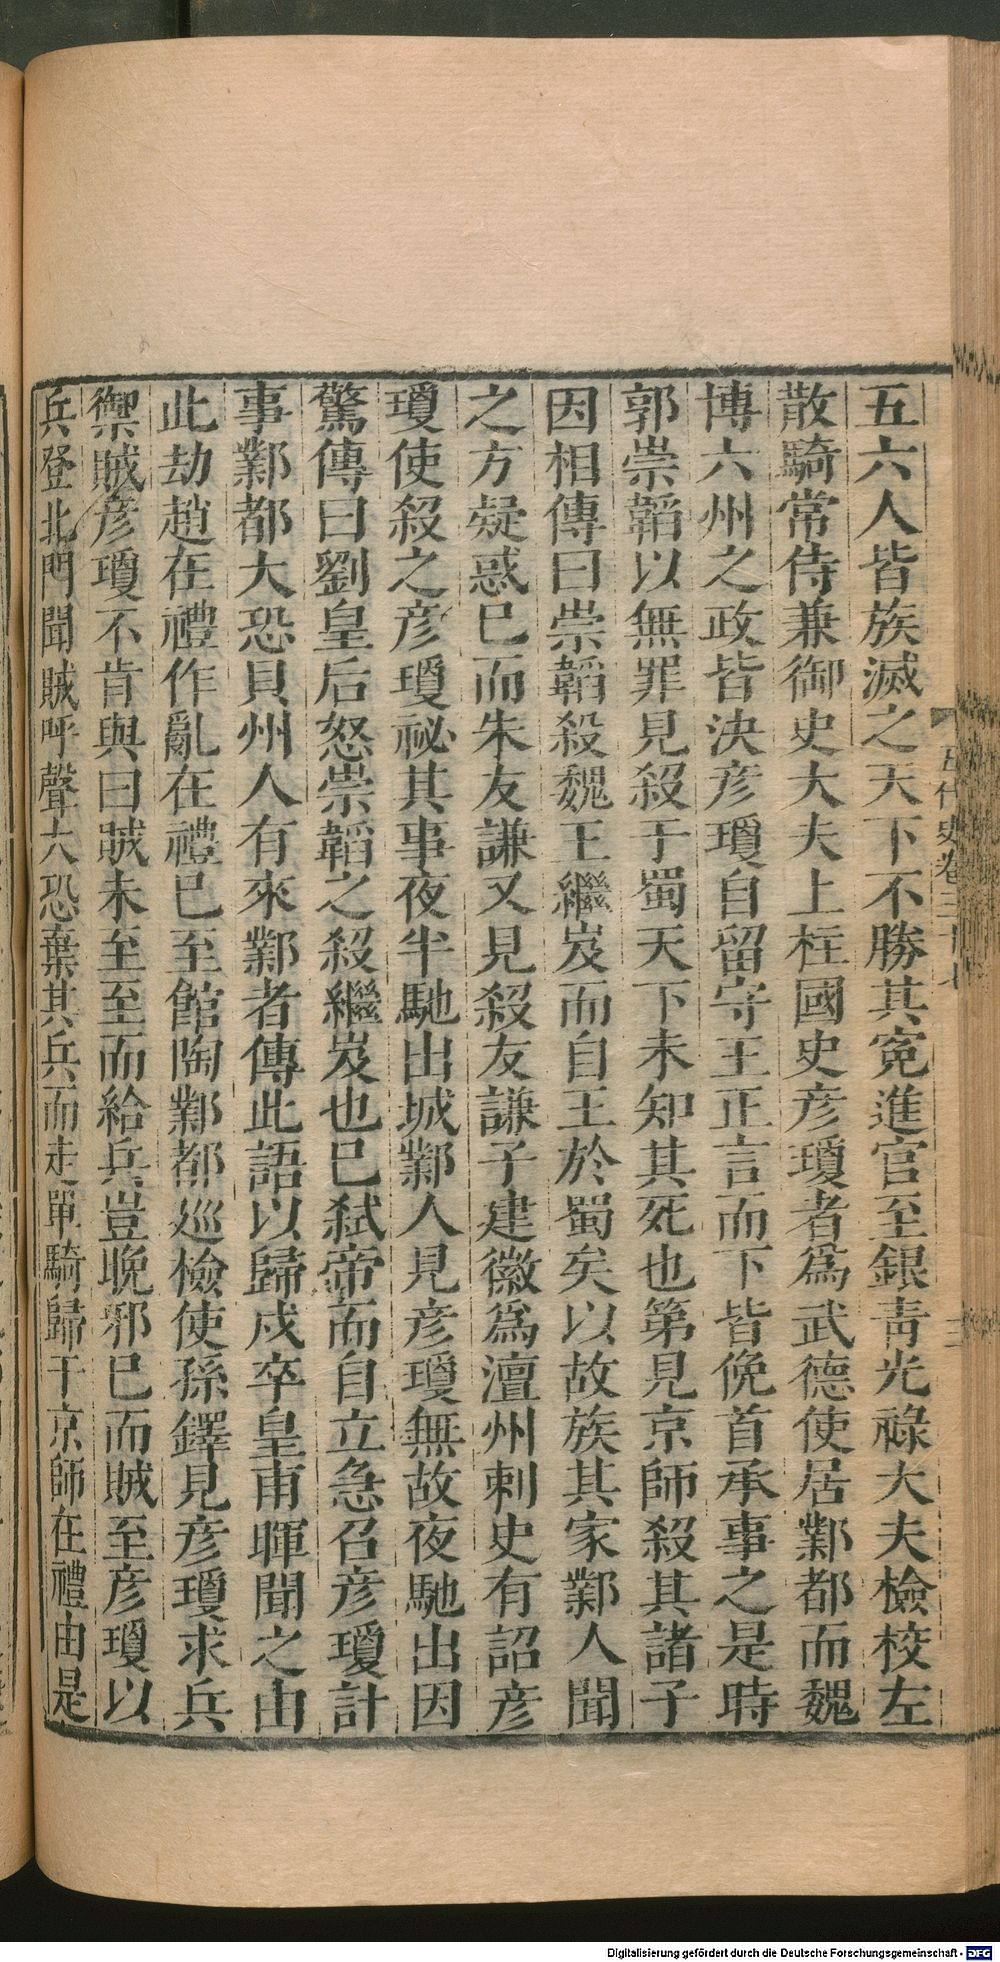 五六人皆族滅之天下不勝其冤進官至銀青光祿大夫檢校左
散騎常侍兼御史大夫上柱國史彦瓊者爲武德使居鄴都而魏
博六州之政皆決彦瓊自留守王正言而下皆俛首承事之是時
郭崇韜以無罪見殺于蜀天下未知其死也第見京師殺其諸子
因相傳曰崇韜殺魏王繼岌而自王於蜀矣以故族其家鄴人聞
之方疑惑已而朱友謙又見殺友謙子建徽爲澶州刺史有詔彦
瓊使殺之彦瓊祕其事夜半馳出城鄴人見彦瓊無故夜馳出因
驚傳曰劉皇后怒崇韜之殺繼岌也已弑帝而自立急召彦瓊計
事鄴都大恐貝州人有來鄴者傳此語以歸戍卒皇甫暉聞之由
此劫趙在禮作亂在禮已至館陶鄴都巡檢使孫鐸見彦瓊求兵
禦賊彦瓊不肯與曰賊未至至而給兵豈晚邪已而賊至彦瓊以
兵登北門聞賊呼聲大恐棄其兵而走單騎歸于京師在禮由是
五代史卷三十七
三
Digitalisierung gefördert durch die Deutsche Forschungsgemeinschaft - DFG